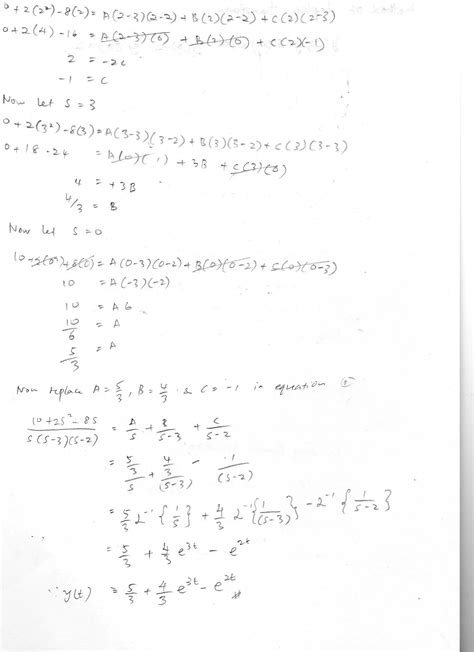 0 + 2(2²) - 8(2) = A(2-3)(2-2) + B(2)(2-2) + C(2)(2-3)
0 + 2(4) - 16 = A(2-3)(0) + B(2)(0) + C(2)(-1)
2 = -2C
-1 = C
Now let S = 3
0 + 2(3²) - 8(3) = A(3-3)(3-2) + B(3)(3-2) + C(3)(3-3)
0 + 18 - 24 = A(0)(1) + 3B + C(3)(0)
4 = +3B
4/3 = B
Now let S = 0
10 + 2(0²) + 8(0) = A(0-3)(0-2) + B(0)(0-2) + C(0)(0-3)
10 = A(-3)(-2)
10 = A6
10/6 = A
5/3 = A
Now replace A = 5/3, B = 4/3 & C = -1 in equation ②
(10+2S²-8S)/(S(S-3)(S-2)) = A/S + B/(S-3) + C/(S-2)
= (5/3)/S + (4/3)/(S-3) - 1/(S-2)
= 5/3 L⁻¹{1/S} + 4/3 L⁻¹{1/(S-3)} - L⁻¹{1/(S-2)}
= 5/3 + 4/3 e^3t - e^2t
∴ y(t) = 5/3 + 4/3 e^3t - e^2t #